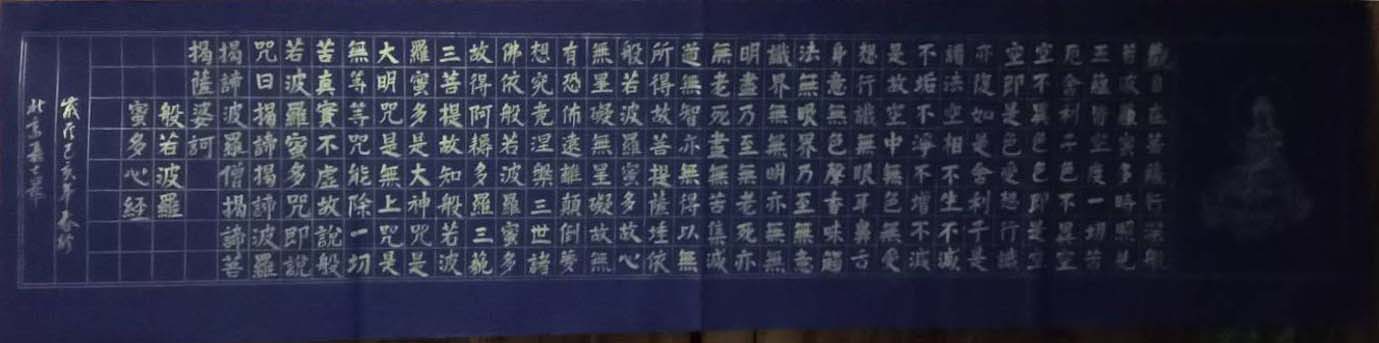 觀自在菩薩行深般
若波羅蜜多時照見
五蘊皆空度一切苦
厄舍利子色不異空
空不異色色即是空
空即是色受想行識
亦復如是舍利子是
諸法空相不生不滅
不垢不淨不增不減
是故空中無色無受
想行識無眼耳鼻舌
身意無色聲香味觸
法無眼界乃至無意
識界無無明亦無無
明盡乃至無老死亦
無老死盡無苦集滅
道無智亦無得以無
所得故菩提薩埵依
般若波羅蜜多故心
無罣礙無罣礙故無
有恐怖遠離顛倒夢
想究竟涅槃三世諸
佛依般若波羅蜜多
故得阿耨多羅三藐
三菩提故知般若波
羅蜜多是大神咒是
大明咒是無上咒是
無等等咒能除一切
苦真實不虛故說般
若波羅蜜多咒即說
咒曰揭諦揭諦波羅
揭諦波羅僧揭諦菩
揭薩婆訶
般若波羅
蜜多心經
歲在己亥年春